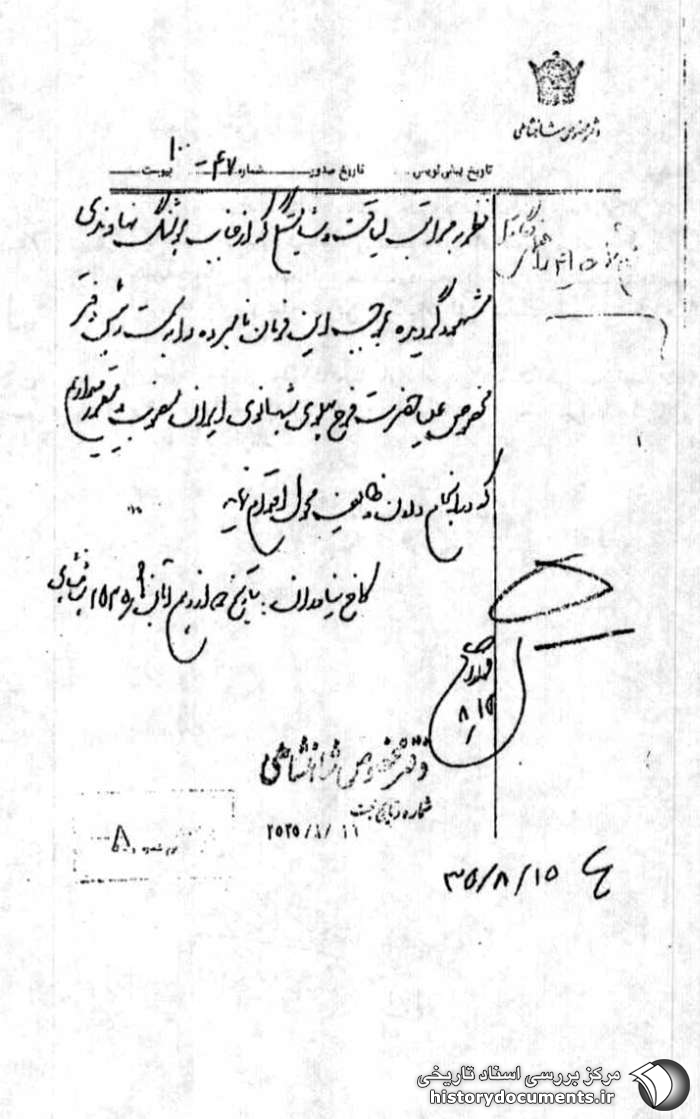 دفتر مخصوص شاهنشاهی
تاریخ پیش نویس تاریخ صدور شماره ۴۷ پیوست
نظر بمراتب لیاقت و شایستگی که از جانب هوشنگ نهاوندی
مشهود گردیده بموجب این فرمان نامبرده را بسمت رئیس دفتر
مخصوص علیاحضرت فرح پهلوی شهبانوی ایران منصوب و مقرر میداریم
که در انجام دادن وظایف محوله اقدام نماید
کاخ نیاوران، بتاریخ یازدهم آبان ماه ۲۵۳۵ شاهنشاهی
۸/۱۵
دفتر مخصوص شاهنشاهی
شماره و تاریخ ثبت
۲۵۳۵/۸/۱۱
۸
۳۵/۸/۱۵
مرکز بررسی اسناد تاریخی
historydocuments.ir